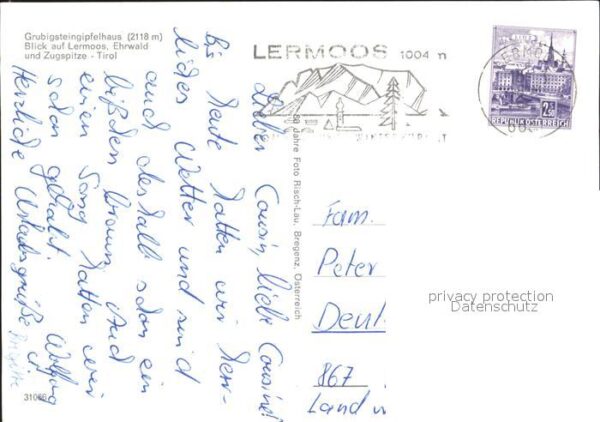 Grubigsteingipfelhaus (2118 m)
Blick auf Lermoos, Ehrwald
und Zugspitze - Tirol
LERMOOS 1004 m
WINTERSPORT
2.50
REPUBLIK ÖSTERREICH
Lieber Cousin, liebe Cousine!
Bis heute hatten wir herr-
liches Wetter und sind
auch deshalb schon ein
bißchen braun. Auch
einen Song hatten wir
schon gehabt.
Herzliche Urlaubsgrüße
Wolfgang
Brigitte
80 Jahre Foto Risch-Lau, Bregenz, Österreich
Fam.
Peter
Deut
867
Land
privacy protection
Datenschutz
31086